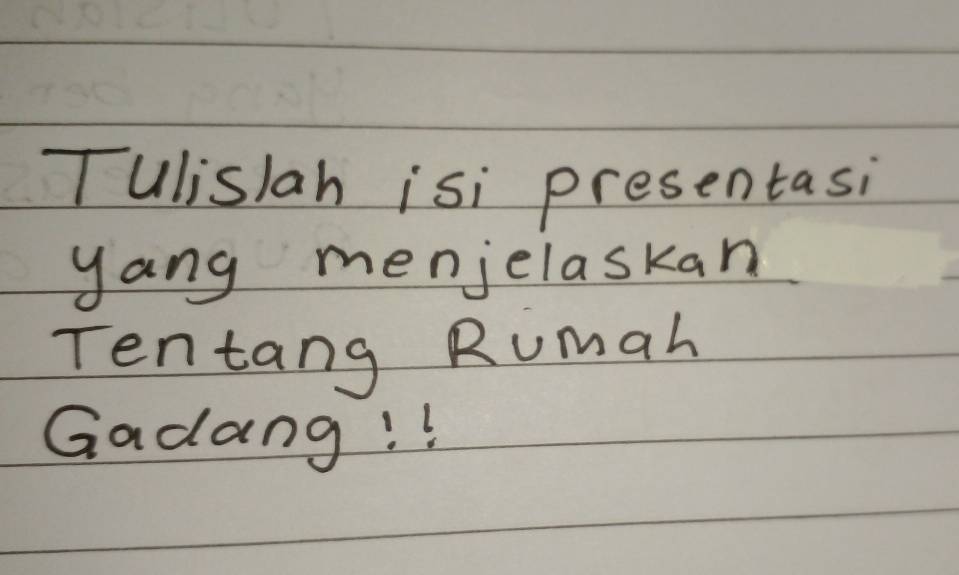 TUlislah isi presentasi
yang menjelaskan
Tentang Rumah
Gadang!!